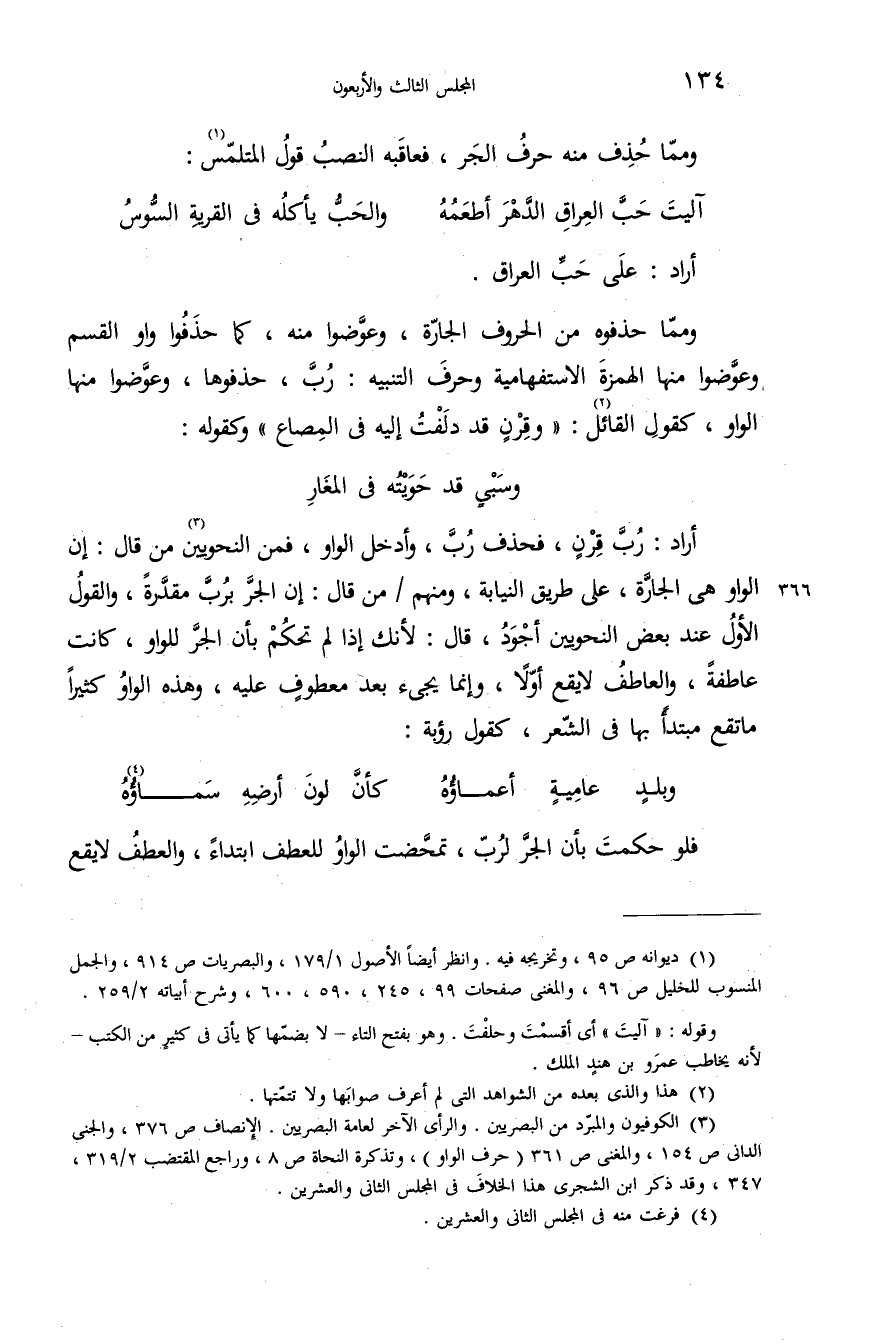 ١٣٤ المجلس الثالث والأربعون
ومما حُذِف منه حرفُ الجَر ، فعاقَبه النصبُ قولُ المتلمّس(١) :
آليتَ حَبَّ العِراقِ الدَّهْرَ أطعَمُهُ والحَبُّ يأكلُه فى القريةِ السُّوسُ
أراد : علَى حَبِّ العراق .
ومما حذفوه من الحروف الجارّة ، وعوَّضوا منه ، كما حذَفُوا واو القسم
وعوَّضوا منها الهمزةَ الاستفهامية وحرفَ التنبيه : رُبَّ ، حذفوها ، وعوَّضوا منها
الواو ، كقولِ القائل(٢) : « وقِرْنٍ قد دلَفْتُ إليه فى المِصاع » وكقوله :
وسَبْيٍ قد حَوَيْتُه فى المغَارِ
أراد : رُبَّ قِرْنٍ ، فحذف رُبَّ ، وأدخل الواو ، فمن النحويين(٣) من قال : إن
٣٦٦ الواو هى الجارَّة ، على طريق النيابة ، ومنهم / من قال : إن الجرَّ برُبَّ مقدَّرةً ، والقولُ
الأوّلُ عند بعض النحويين أجْوَدُ ، قال : لأنك إذا لم تحكُمْ بأن الجرَّ للواو ، كانت
عاطفةً ، والعاطفُ لايقع أوّلًا ، وإنما يجىء بعد معطوفٍ عليه ، وهذه الواوُ كثيراً
ماتقع مبتدأً بها فى الشّعر ، كقول رؤبة :
وبلـدٍ عامِيـةٍ أعمـاؤُهُ كأنَّ لونَ أرضِهِ سَمـــاؤُهُ(٤)
فلو حكمتَ بأن الجرَّ لرُبّ ، تمحَّضت الواوُ للعطف ابتداءً ، والعطفُ لايقع
(١) ديوانه ص ٩٥ ، وتخريجه فيه . وانظر أيضاً الأصول ١٧٩/١ ، والبصريات ص ٩١٤ ، والجمل
المنسوب للخليل ص ٩٦ ، والمغنى صفحات ٩٩ ، ٢٤٥ ، ٥٩٠ ، ٦٠٠ ، وشرح أبياته ٢٥٩/٢ .
وقوله : « آليتَ » أى أقسمْتَ وحلفْتَ . وهو بفتح التاء – لا بضمّها كما يأتى فى كثيرٍ من الكتب –
لأنه يخاطب عمرَو بن هندٍ الملك .
(٢) هذا والذى بعده من الشواهد التى لم أعرف صوابَها ولا تتمّتها .
(٣) الكوفيون والمبرّد من البصريين . والرأى الآخر لعامة البصريين . الإنصاف ص ٣٧٦ ، والجنى
الدانى ص ١٥٤ ، والمغنى ص ٣٦١ ( حرف الواو ) ، وتذكرة النحاة ص ٨ ، وراجع المقتضب ٣١٩/٢ ،
٣٤٧ ، وقد ذكر ابن الشجرى هذا الخلافَ فى المجلس الثانى والعشرين .
(٤) فرغت منه فى المجلس الثانى والعشرين .